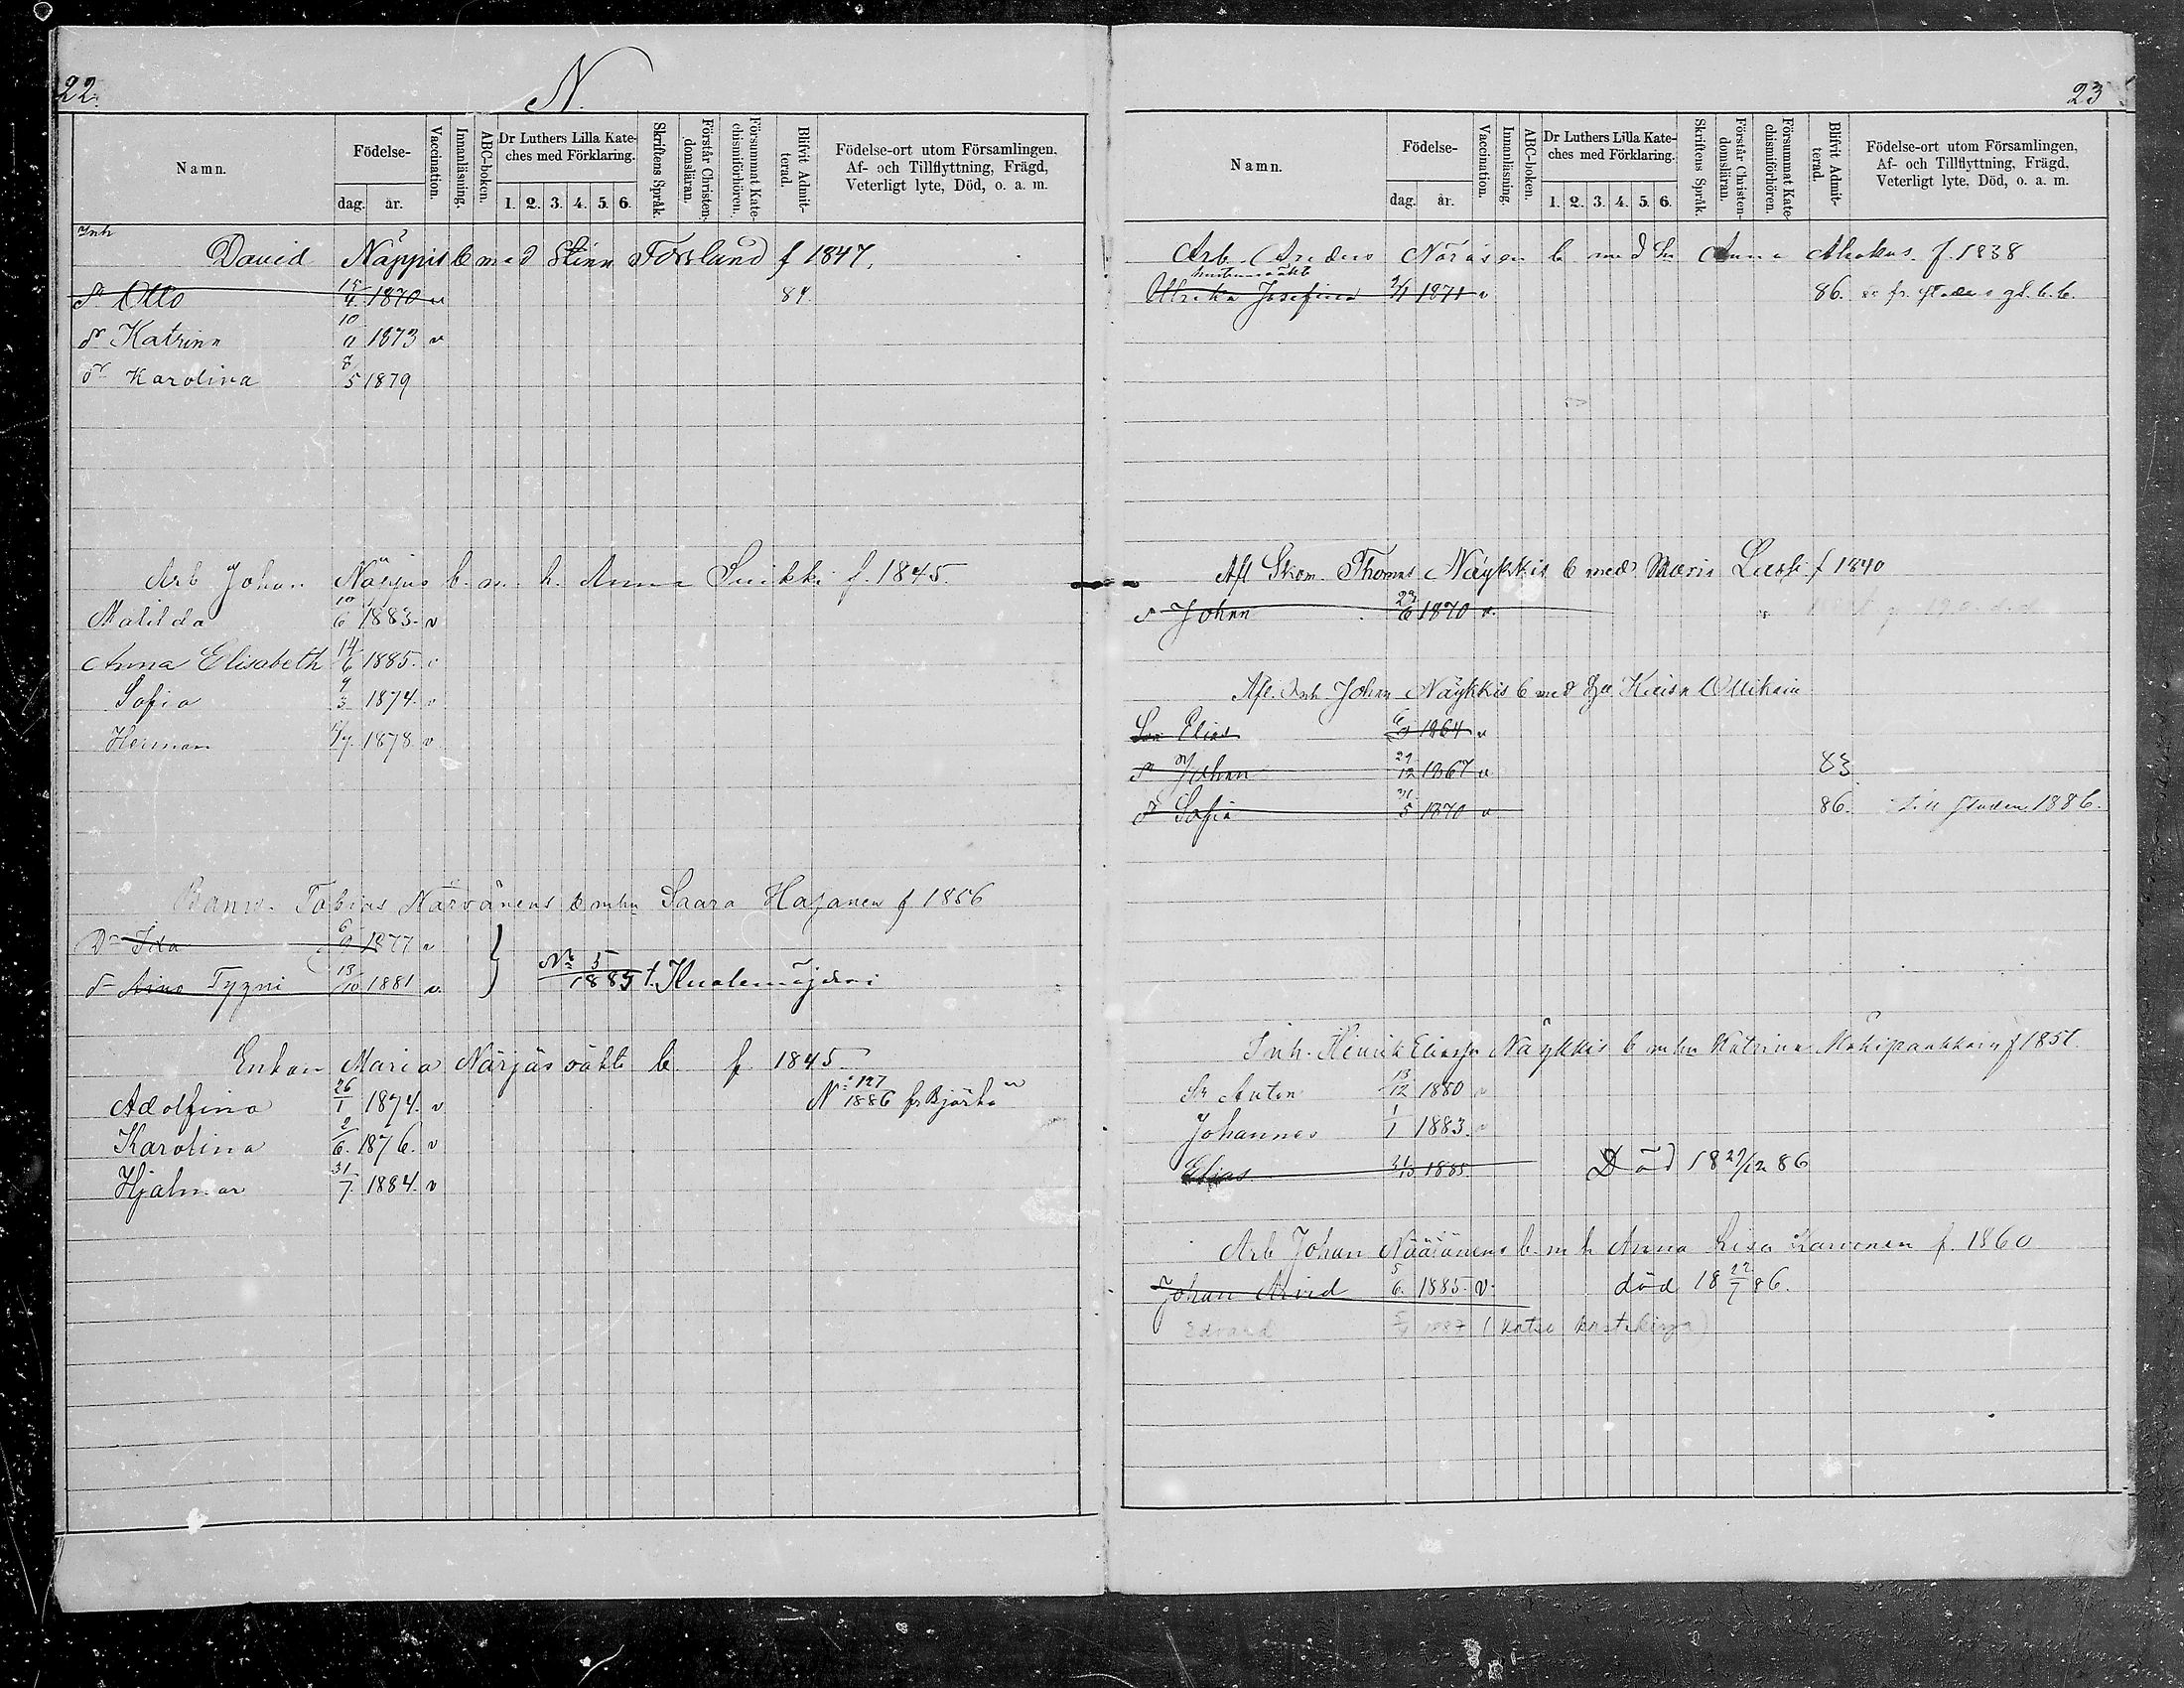 22.
N.
Namn.
Födelse-
dag.
år.
Vaccination.
Innanläsning.
ABC-boken.
Dr Luthers Lilla Kate-
ches med Förklaring.
1. 2. 3. 4. 5. 6.
Skriftens Språk.
Förstår Christen-
domsläran.
Försummat Kate-
chismiförhören.
Blifvit Admit-
terad.
Födelse-ort utom Församlingen,
Af- och Tillflyttning, Frägd,
Veterligt lyte, Död, o. a. m.
Inh
David Näppis b med Stina Forslund f 1847.
Sn Otto 1870 v
dr Katrina 1873 v
dr Karolina 8/5 1879
Arb Johan b. m. h. Anna Suikki f. 1845.
Matilda 10/6 1883. v
Anna Elisabeth 14/6 1885. v
Sofia 9/3 1874. v
Herman 1878. v
Tobias Närvänens b m hu Saara Hajanen f 1856
Dr Ida 6/9 1877 v
dr Aino Tyyni 13/10 1881 v.
No 5/1885 t.
Enkan Maria b. f. 1845
Adolfina 26/1 1874. v
No 127/1886 fr Björkö
Karolina 2/6. 1876. v
Hjalmar 31/7. 1884. v
23
Namn.
Födelse-
dag.
år.
Vaccination.
Innanläsning.
ABC-boken.
Dr Luthers Lilla Kate-
ches med Förklaring.
1. 2. 3. 4. 5. 6.
Skriftens Språk.
Förstår Christen-
domsläran.
Försummat Kate-
chismiförhören.
Blifvit Admit-
terad.
Födelse-ort utom Församlingen,
Af- och Tillflyttning, Frägd,
Veterligt lyte, Död, o. a. m.
Arb. Anders b med Anna f. 1838
Ulrika Josefina 1871 v 86. fr.
Afl Skom. Thomas Näykkis b med Maria Lassi f 1840
s Johan 1870 v.
Afl. Inh. Johan Näykkis b med Kaisa Ollikain
Son Elias 1864 v
sn Johan 12 1867 v 83
dr Sofia 31/5 1870 v 86. till staden 1886.
Inh. Henrik Eliass Näykkis b m hu Katrina f 1851.
Sn Anton 13/12 1880 v
Johannes 1/1 1883. v
Elias 1885 Död 18 27/12 86
Arb Johan Nääränens b. m h Anna Lisa f. 1860
Johan Arvid 5/6. 1885. v. död 18 22/7 86.
Edvard 1887 (katso